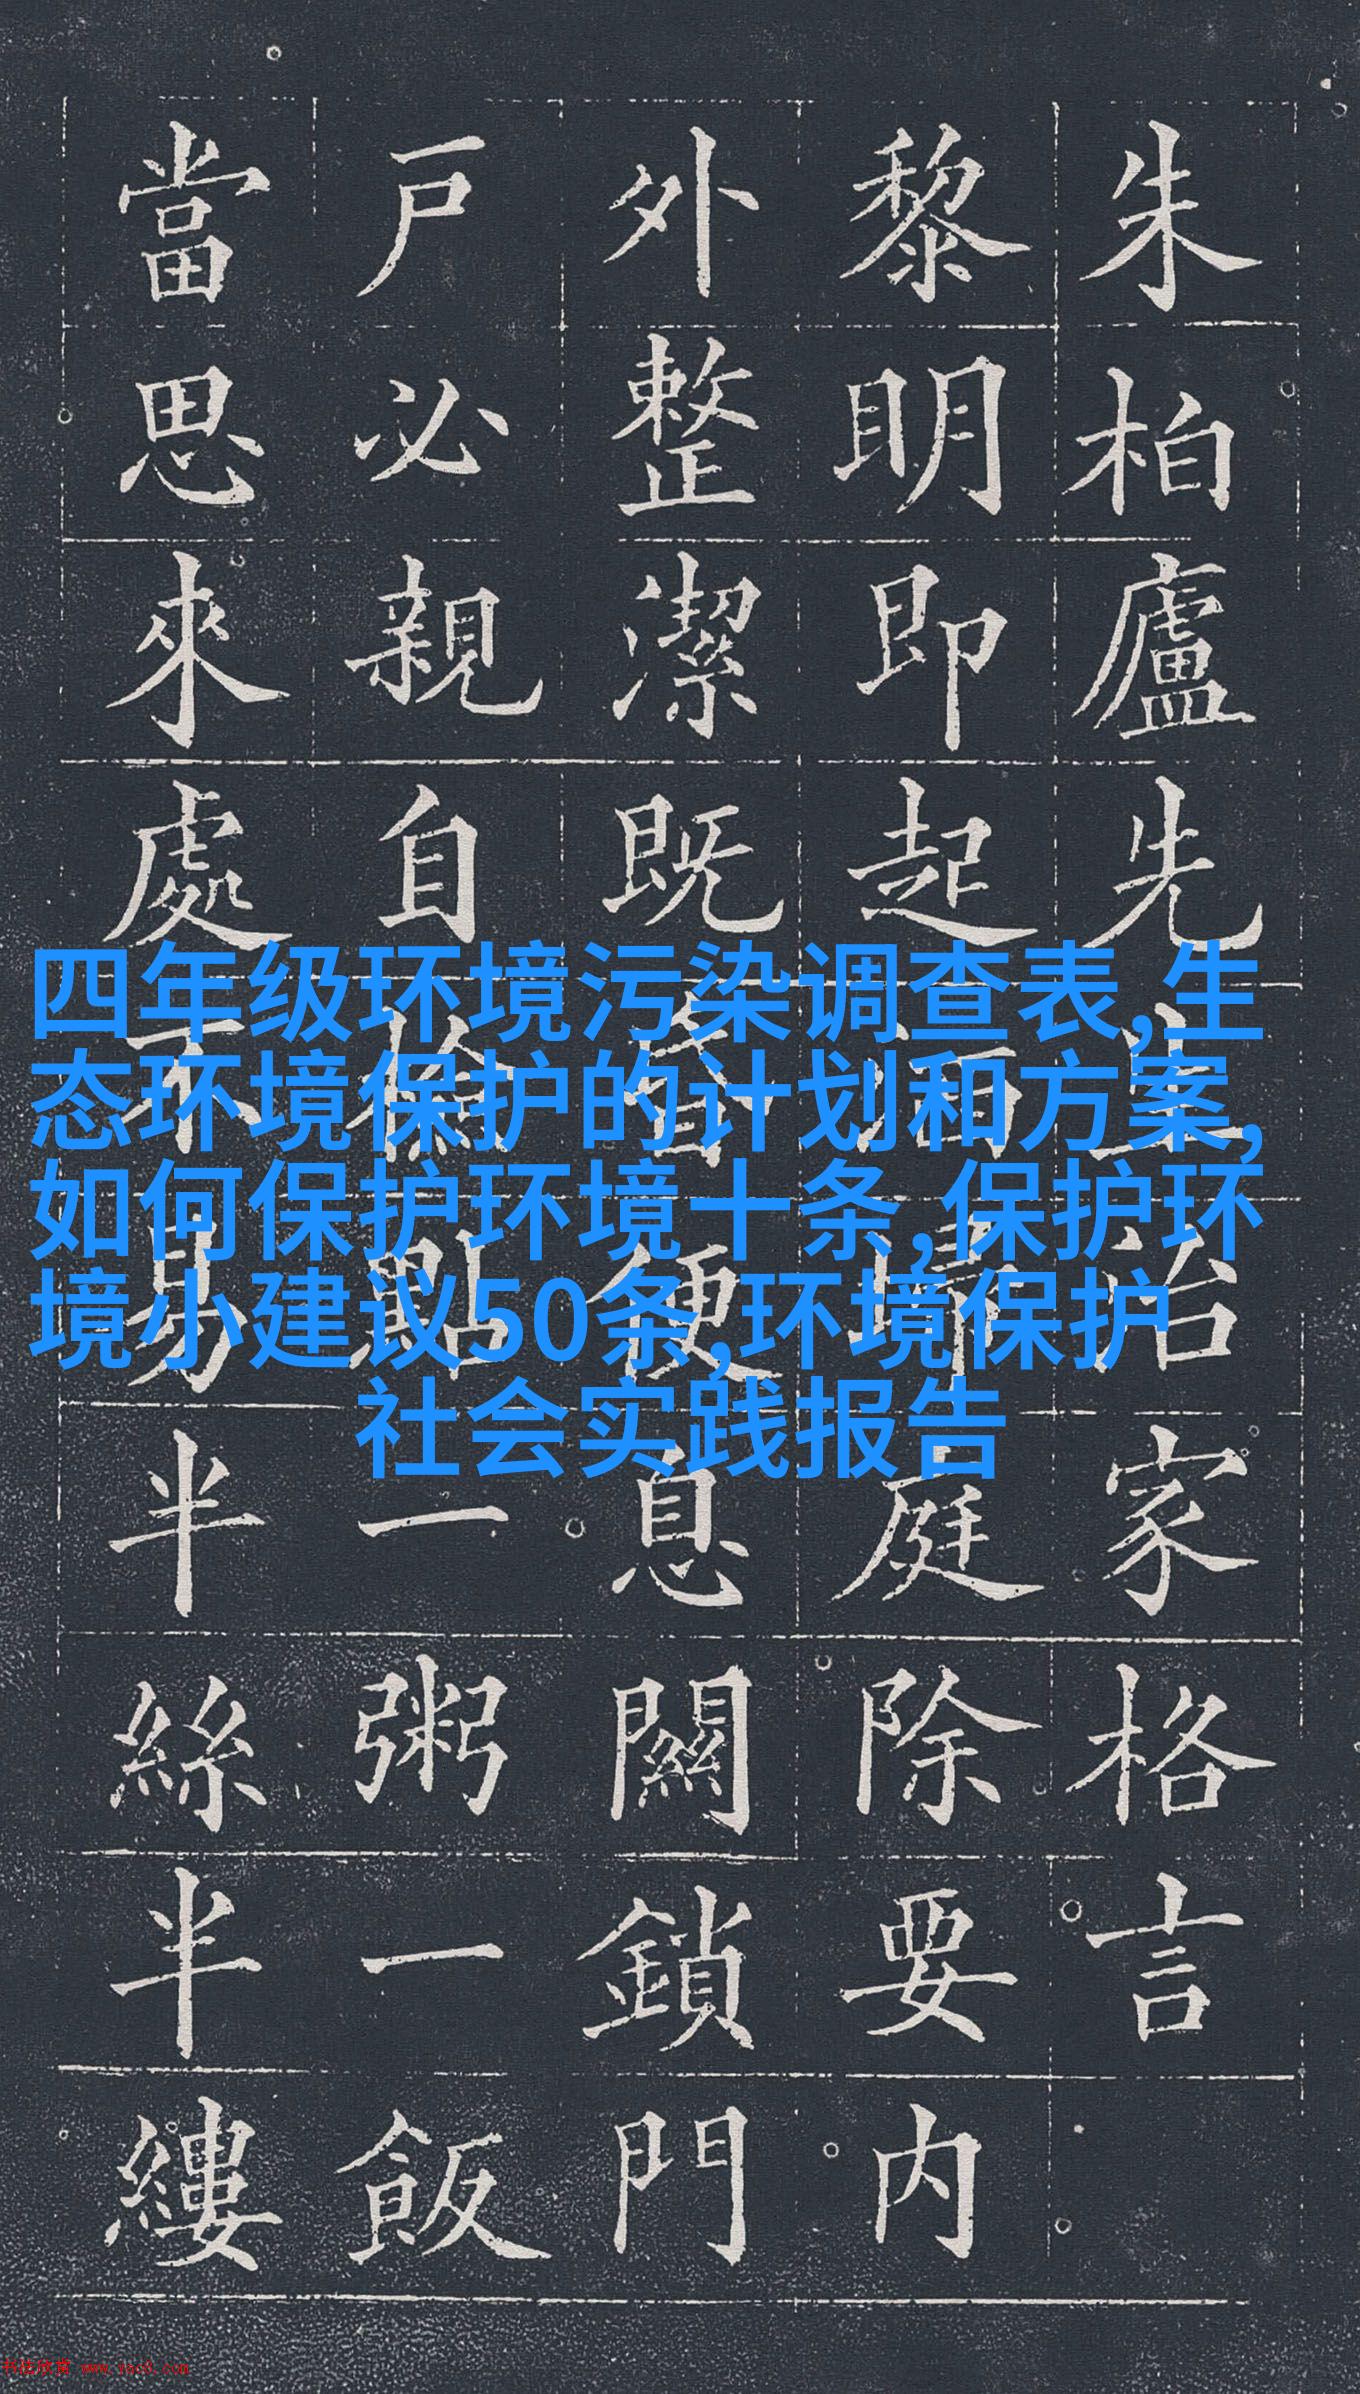 朱柏廬先生治家格言
黎明即起洒掃庭除要内
外整潔既昏便息關鎖門
戶必親自檢點一粥一飯
當思來處不易半絲半縷
四年级环境污染调查表,生
态环境保护的计划和方案,
如何保护环境十条,保护环
境小建议50条,环境保护
社会实践报告
书法欣赏 www.yac8.com